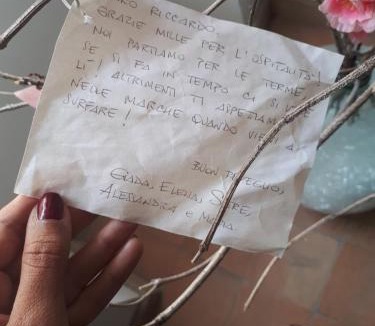 CARO RICCARDO,
GRAZIE MILLE PER L'OSPITALITÀ!
NOI PARTIAMO PER LE TERME
SE SI FA IN TEMPO CI SI VEDE
LÌ! ALTRIMENTI TI ASPETTIAMO
NELLE MARCHE QUANDO VIENI A
SURFARE!
BUON
GIADA, ELENA,
ALESSANDRA e